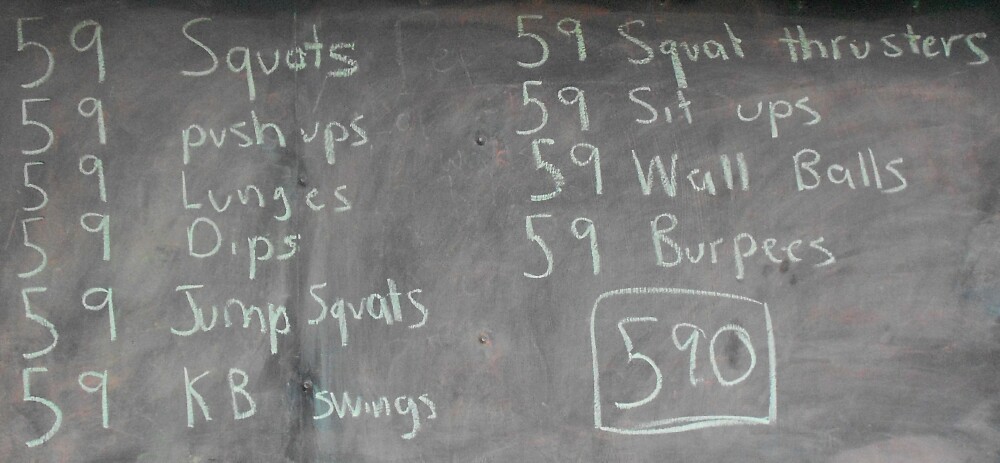 59 Squats
59 push ups
59 Lunges
59 Dips
59 Jump Squats
59 KB swings
59 Squat thrusters
59 Sit ups
59 Wall Balls
59 Burpees
590